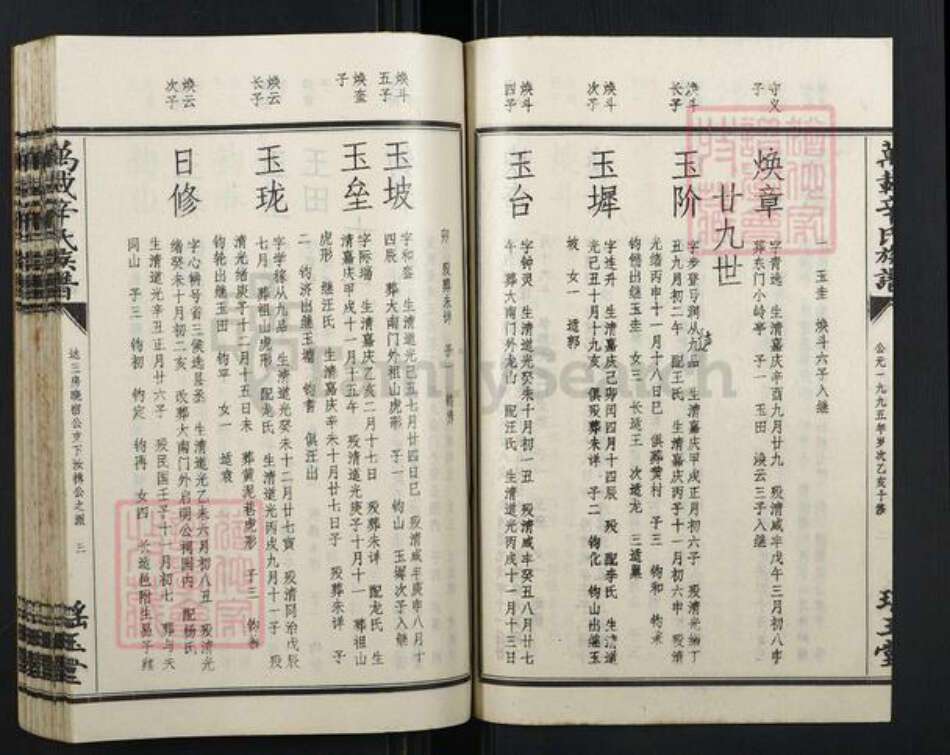 萬載辛氏族譜
公元一九九五年岁次乙亥于滁
一 玉圭 焕斗六子入继
守义
子
焕章
字青选 生清嘉庆辛酉九月廿九 殁清咸丰戊午三月初八申
葬东门小岭亭 子一 玉田 焕云三子入继
廿九世
焕斗
长子
玉阶
字步登号润从九品 生清嘉庆甲戌正月初六子 殁清光绪丁
丑九月初二午 配王氏 生清嘉庆丙子十一月初六申 殁清
光绪丙申十一月十八日巳 俱葬黄村 子三 钧和 钧承
出继玉圭 女三 长适王 次适龙 三适巢
焕斗
次子
玉墀
字连升 生清嘉庆己卯闰四月十四辰 殁 配李氏 生清道
光己丑十月十九亥 俱殁葬朱详 子二 钧化 钧山出继玉
坡 女一 适郭
焕斗
四子
玉台
字钟灵 生清道光癸未十月初一丑 殁清咸丰癸丑八月廿七
午 葬大南门外龙山 配汪氏 生清道光丙戌十一月十三日
卯 殁葬朱详 子一
焕斗
五子
玉坡
字和盛 生清道光己丑七月廿四日巳 殁清咸丰庚申八月丁
四辰 葬大南门外祖山虎形 子一 钧山 玉墀次子入继
焕奎
子
玉垒
字际瑞 生清嘉庆乙亥二月十七日 殁葬朱详 配龙氏 生
清嘉庆甲戌十一月十五午 殁清道光庚子十月十一 葬祖山
虎形 继汪氏 生清嘉庆辛未十月廿七日子 殁葬朱详 子
二 钧济出继玉塘 钧书 俱汪出
焕云
长子
玉珑
字学禄从九品 生清道光癸未十二月廿七寅 殁清同治戊辰
七月 葬祖山虎形 配龙氏 生清道光丙戌九月十一子 殁
清光绪庚子十二月十五日未 葬黄泥巷虎形 子三
钧轮出继玉田 钧平 女一 适袁
焕云
次子
日修
字心畊号省三侯选县丞 生清道光乙未六月初八丑 殁清光
绪癸未十月初二亥 改葬大南门外启明公祠园内 配杨氏
生清道光辛丑正月廿六子 殁民国壬子十一月初七 葬与夫
同山 子三 钧初 钧定 钧再 女四 长适邑附生易子维
达三房晓宿公京下汝楫公之派 三
瑶玉堂